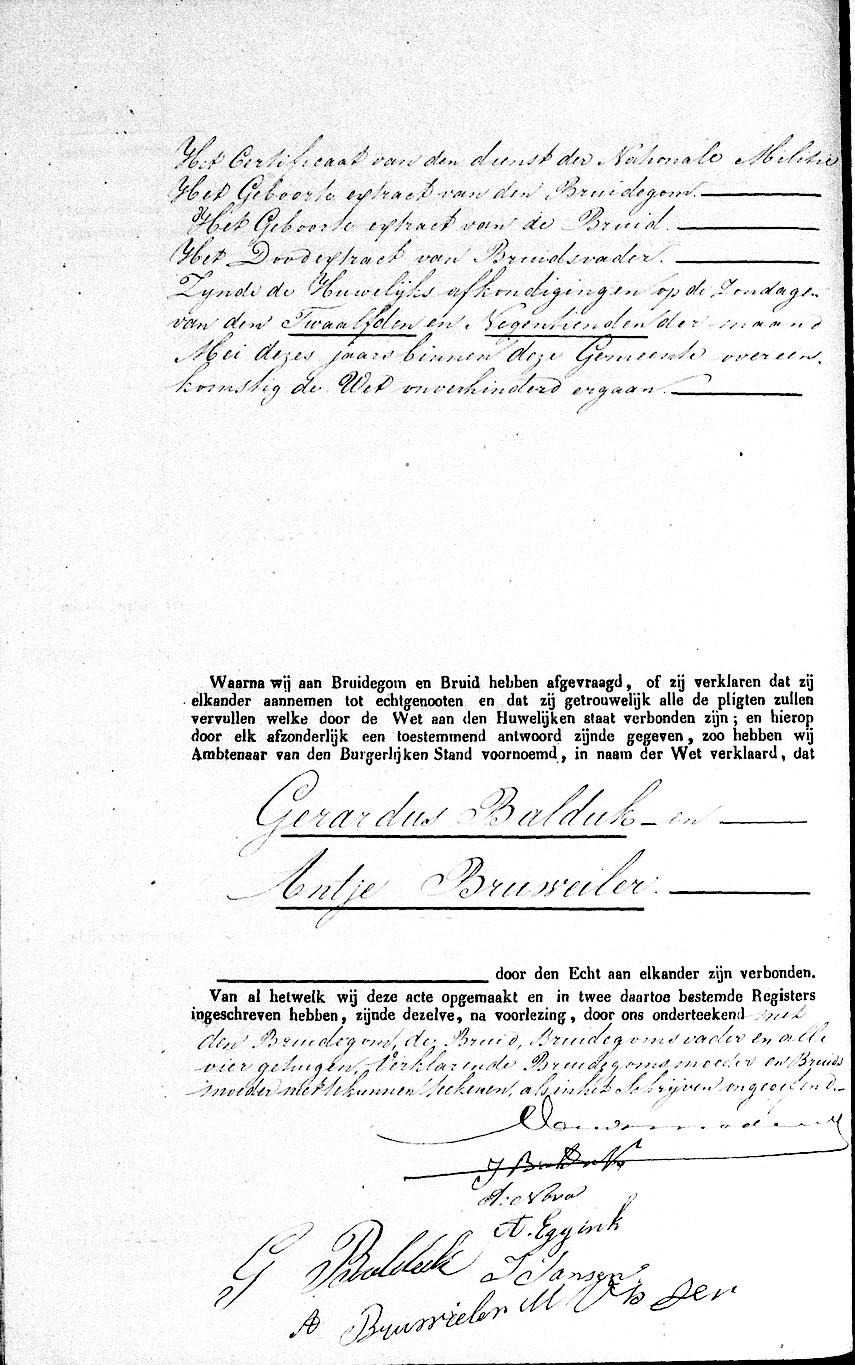 Het Certificaat van den dienst der Nationale Militie
Het Geboorte extract van den Bruidegom.
Het Geboorte extract van de Bruid.
Het Doodextract van Bruidsvader.
Zynde de Huwelijks afkondigingen op de Zondagen
van den Twaalfden en Negentienden der maand
Mei dezes jaars binnen deze Gemeente overeen-
komstig de Wet onverhinderd ergaan.
Waarna wij aan Bruidegom en Bruid hebben afgevraagd, of zij verklaren dat zij
elkander aannemen tot echtgenooten en dat zij getrouwelijk alle de pligten zullen
vervullen welke door de Wet aan den Huwelijken staat verbonden zijn; en hierop
door elk afzonderlijk een toestemmend antwoord zijnde gegeven, zoo hebben wij
Ambtenaar van den Burgerlijken Stand voornoemd, in naam der Wet verklaard, dat
Gerardus Balduk en
Antje Bruweiler.
door den Echt aan elkander zijn verbonden.
Van al hetwelk wij deze acte opgemaakt en in twee daartoe bestemde Registers
ingeschreven hebben, zijnde dezelve, na voorlezing, door ons onderteekend met
den Bruidegom, de Bruid, Bruidegomsvader en alle
vier getuigen, Verklarende Bruidegomsmoeder en Bruids
moeder niet te kunnen teekenen, als in het Schrijven ongeoefend.
A. Eggink
G Balduk
J Jansen
A Bruwieler M Visser